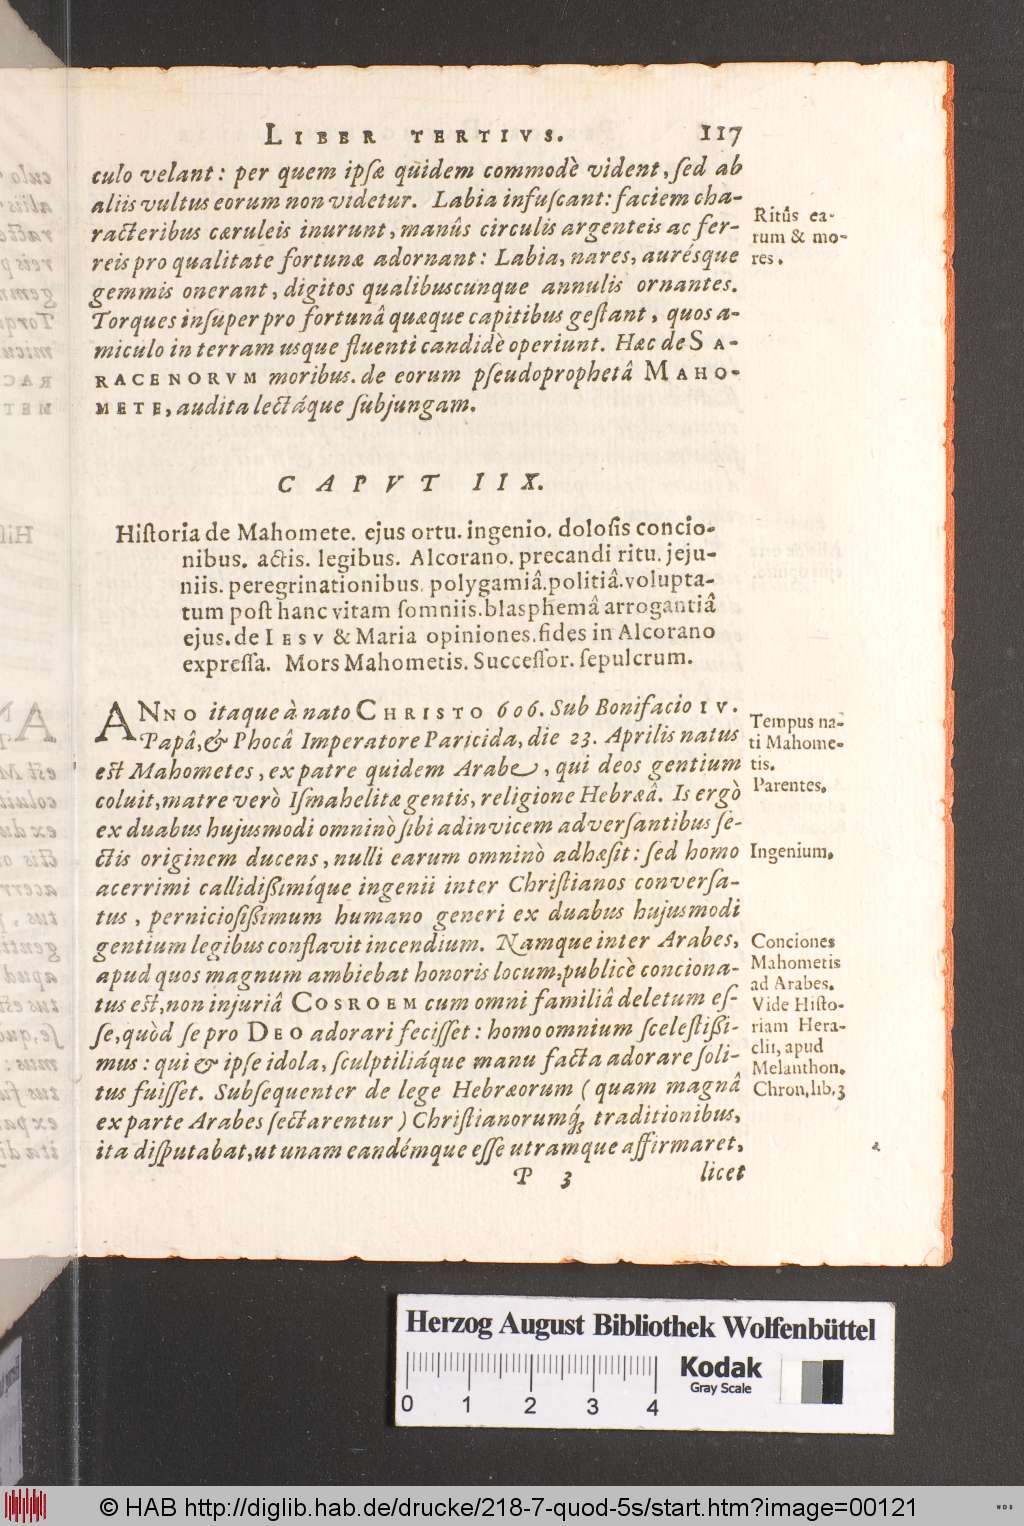 LIBER TERTIVS. 117
culo velant: per quem ipſæ quidem commodè vident, ſed ab
aliis vultus eorum non videtur. Labia infuſcant: faciem cha-
racteribus cæruleis inurunt, manûs circulis argenteis ac fer-
reis pro qualitate fortunæ adornant: Labia, nares, aurésque
gemmis onerant, digitos qualibuscunque annulis ornantes.
Torques inſuper pro fortunâ quæque capitibus geſtant, quos a-
miculo in terram usque fluenti candidè operiunt. Hæc de SA-
RACENORVM moribus. de eorum pſeudoprophetâ MAHO-
METE, audita lectáque ſubjungam.
Ritûs ea-
rum & mo-
res.
CAPVT IIX.
Hiſtoria de Mahomete. ejus ortu. ingenio. doloſis concio-
nibus. actis. legibus. Alcorano. precandi ritu. jeju-
niis. peregrinationibus. polygamiâ. politiâ. volupta-
tum poſt hanc vitam ſomniis. blasphemâ arrogantiâ
ejus. de IESV & Maria opiniones. fides in Alcorano
expreſſa. Mors Mahometis. Succeſſor. ſepulcrum.
ANNO itaque à nato CHRISTO 606. Sub Bonifacio IV.
Papâ, & Phocâ Imperatore Paricida, die 23. Aprilis natus
eſt Mahometes, ex patre quidem Arabe, qui deos gentium
coluit, matre verò Iſmahelitæ gentis, religione Hebræâ. Is ergò
ex duabus hujusmodi omninò ſibi adinvicem adverſantibus ſe-
ctis originem ducens, nulli earum omninò adhæſit: ſed homo
acerrimi callidißimíque ingenii inter Chriſtianos converſa-
tus, pernicioſißimum humano generi ex duabus hujusmodi
gentium legibus conflavit incendium. Namque inter Arabes,
apud quos magnum ambiebat honoris locum, publicè conciona-
tus eſt, non injuriâ COSROEM cum omni familiâ deletum eſ-
ſe, quòd ſe pro DEO adorari feciſſet: homo omnium ſceleſtißi-
mus: qui & ipſe idola, ſculptiliáque manu facta adorare ſoli-
tus fuiſſet. Subſequenter de lege Hebræorum (quam magnâ
ex parte Arabes ſectarentur) Chriſtianorumq́; traditionibus,
ita diſputabat, ut unam eandémque eſſe utramque affirmaret,
P 3 licet
Tempus na-
ti Mahome-
tis.
Parentes.
Ingenium.
Conciones
Mahometis
ad Arabes.
Vide Hiſto-
riam Hera-
clii, apud
Melanthon.
Chron. lib. 3
Herzog August Bibliothek Wolfenbüttel
Kodak
Gray Scale
0 1 2 3 4
© HAB http://diglib.hab.de/drucke/218-7-quod-5s/start.htm?image=00121